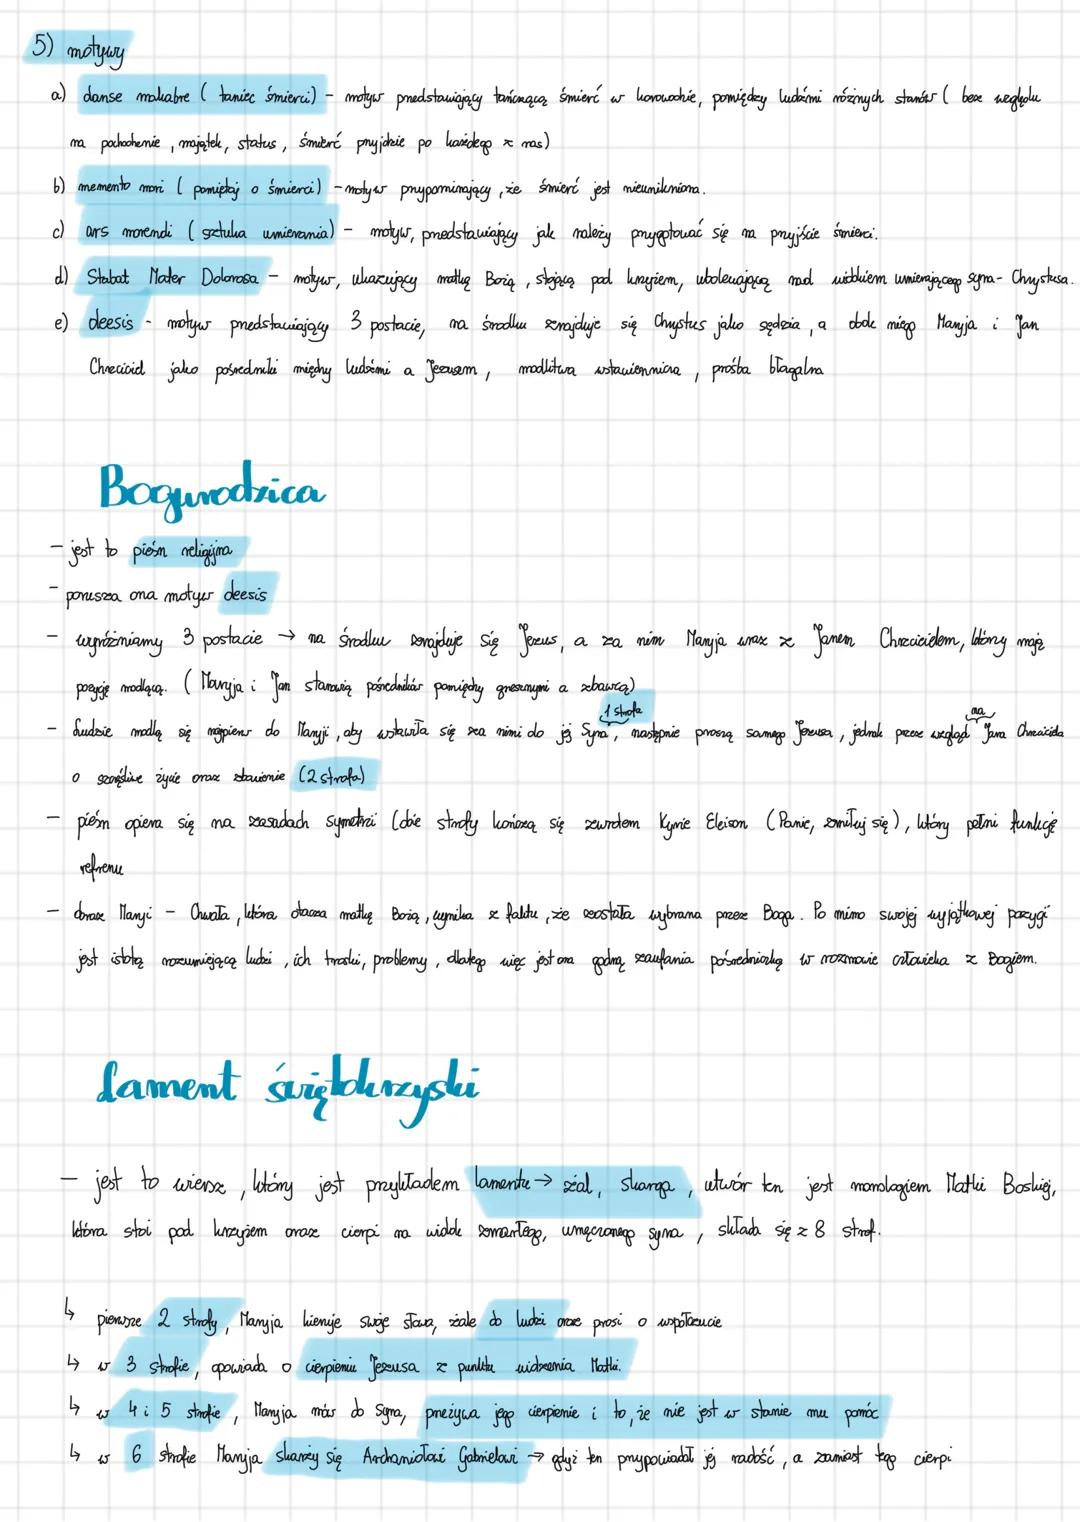 5) motywy
a) danse makabre ( taniec śmierci) - motyw przedstawiający tańczącą śmierć w korowodzie, pomiędzy ludźmi różnych stanów ( bez względu
na pochodzenie , majątek, status , śmierć przyjdzie po każdego z nas)
b) memento mori ( pamiętaj o śmierci) - motyw przypominający , że śmierć jest nieunikniona.
c) ars morendi ( sztuka umierania) - motyw, przedstawiający jak należy przygotować się na przyjście śmierci.
d) Stabat Mater Dolorosa - motyw, ukazujący matkę Bożą , stojącą pod krzyżem, ubolewającą nad widokiem umierającego syna - Chrystusa.
e) deesis - motyw przedstawiający 3 postacie, na środku znajduje się Chrystus jako sędzia , a obok niego Maryja i Jan
Chrzciciel jako pośredniki między ludźmi a Jezusem , modlitwa wstawiennicza , prośba błagalna
Bogurodzica
- jest to pieśń religijna
- porusza ona motyw deesis
- wyróżniamy 3 postacie → na środku znajduje się Jezus, a za nim Maryja wraz z Janem Chrzcicielem, którzy mają
pozycję modlącą. ( Maryja i Jan stanowią pośredników pomiędzy grzesznymi a zbawcą)
1 strofa
na
- Ludzie modlą się najpierw do Maryji , aby wstawiła się za nimi do jej Syna , następnie proszą samego Jezusa , jednak przez wzgląd Jana Chrzciciela
o szczęśliwe życie oraz zbawienie (2 strofa)
- pieśń opiera się na zasadach symetrii (obie strofy kończą się zwrotem Kyrie Eleison ( Panie, zmiłuj się) , który pełni funkcję
refrenu
- obraz Maryi - Chwała , która otacza matkę Bożą , wynika z faktu , że została wybrana przez Boga . Po mimo swojej wyjątkowej pozycji
jest istotą rozumiejącą ludzi , ich troski, problemy , dlatego więc jest ona godną zaufania pośredniczką w rozmowie człowieka z Bogiem.
Lament świętokrzyski
- jest to wiersz , który jest przykładem lamentu → żal, skarga , utwór ten jest monologiem Matki Boskiej,
która stoi pod krzyżem oraz cierpi na widok zmarłego, umęczonego syna , składa się z 8 strof.
↳ pierwsze 2 strofy , Maryja kieruje swoje słowa, żale do ludzi oraz prosi o współczucie
↳ w 3 strofie , opowiada o cierpieniu Jezusa z punktu widzenia Matki.
↳ w 4 i 5 strofie , Maryja mówi do Syna, przeżywa jego cierpienie i to , że nie jest w stanie mu pomóc
↳ w 6 strofie Maryja skarży się Archaniołowi Gabrielowi → gdyż ten przypowiadał jej radość , a zamiast tego cierpi